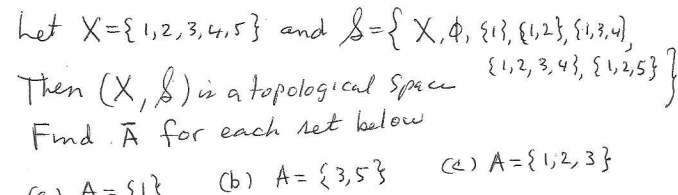 Let X={1,2,3,4,5} and S={X,Φ,{1},{1,2},{1,3,4},
{1,2,3,4},{1,2,5}}
Then (X,S) is a topological space
Find Ā for each set below
(a) A={1} (b) A={3,5} (c) A={1,2,3}